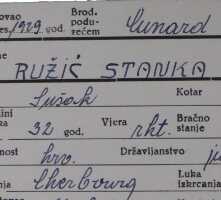 ovao Brod.
es./1929 god. podu- Cunard
rećem
me
RUŽIĆ STANKA
Sušak Kotar
ini
ka 32 god. Vjera rkt. Bračno
stanje
nost hrv. Državljanstvo ju
nja Cherbourg Luka
iskrcanja